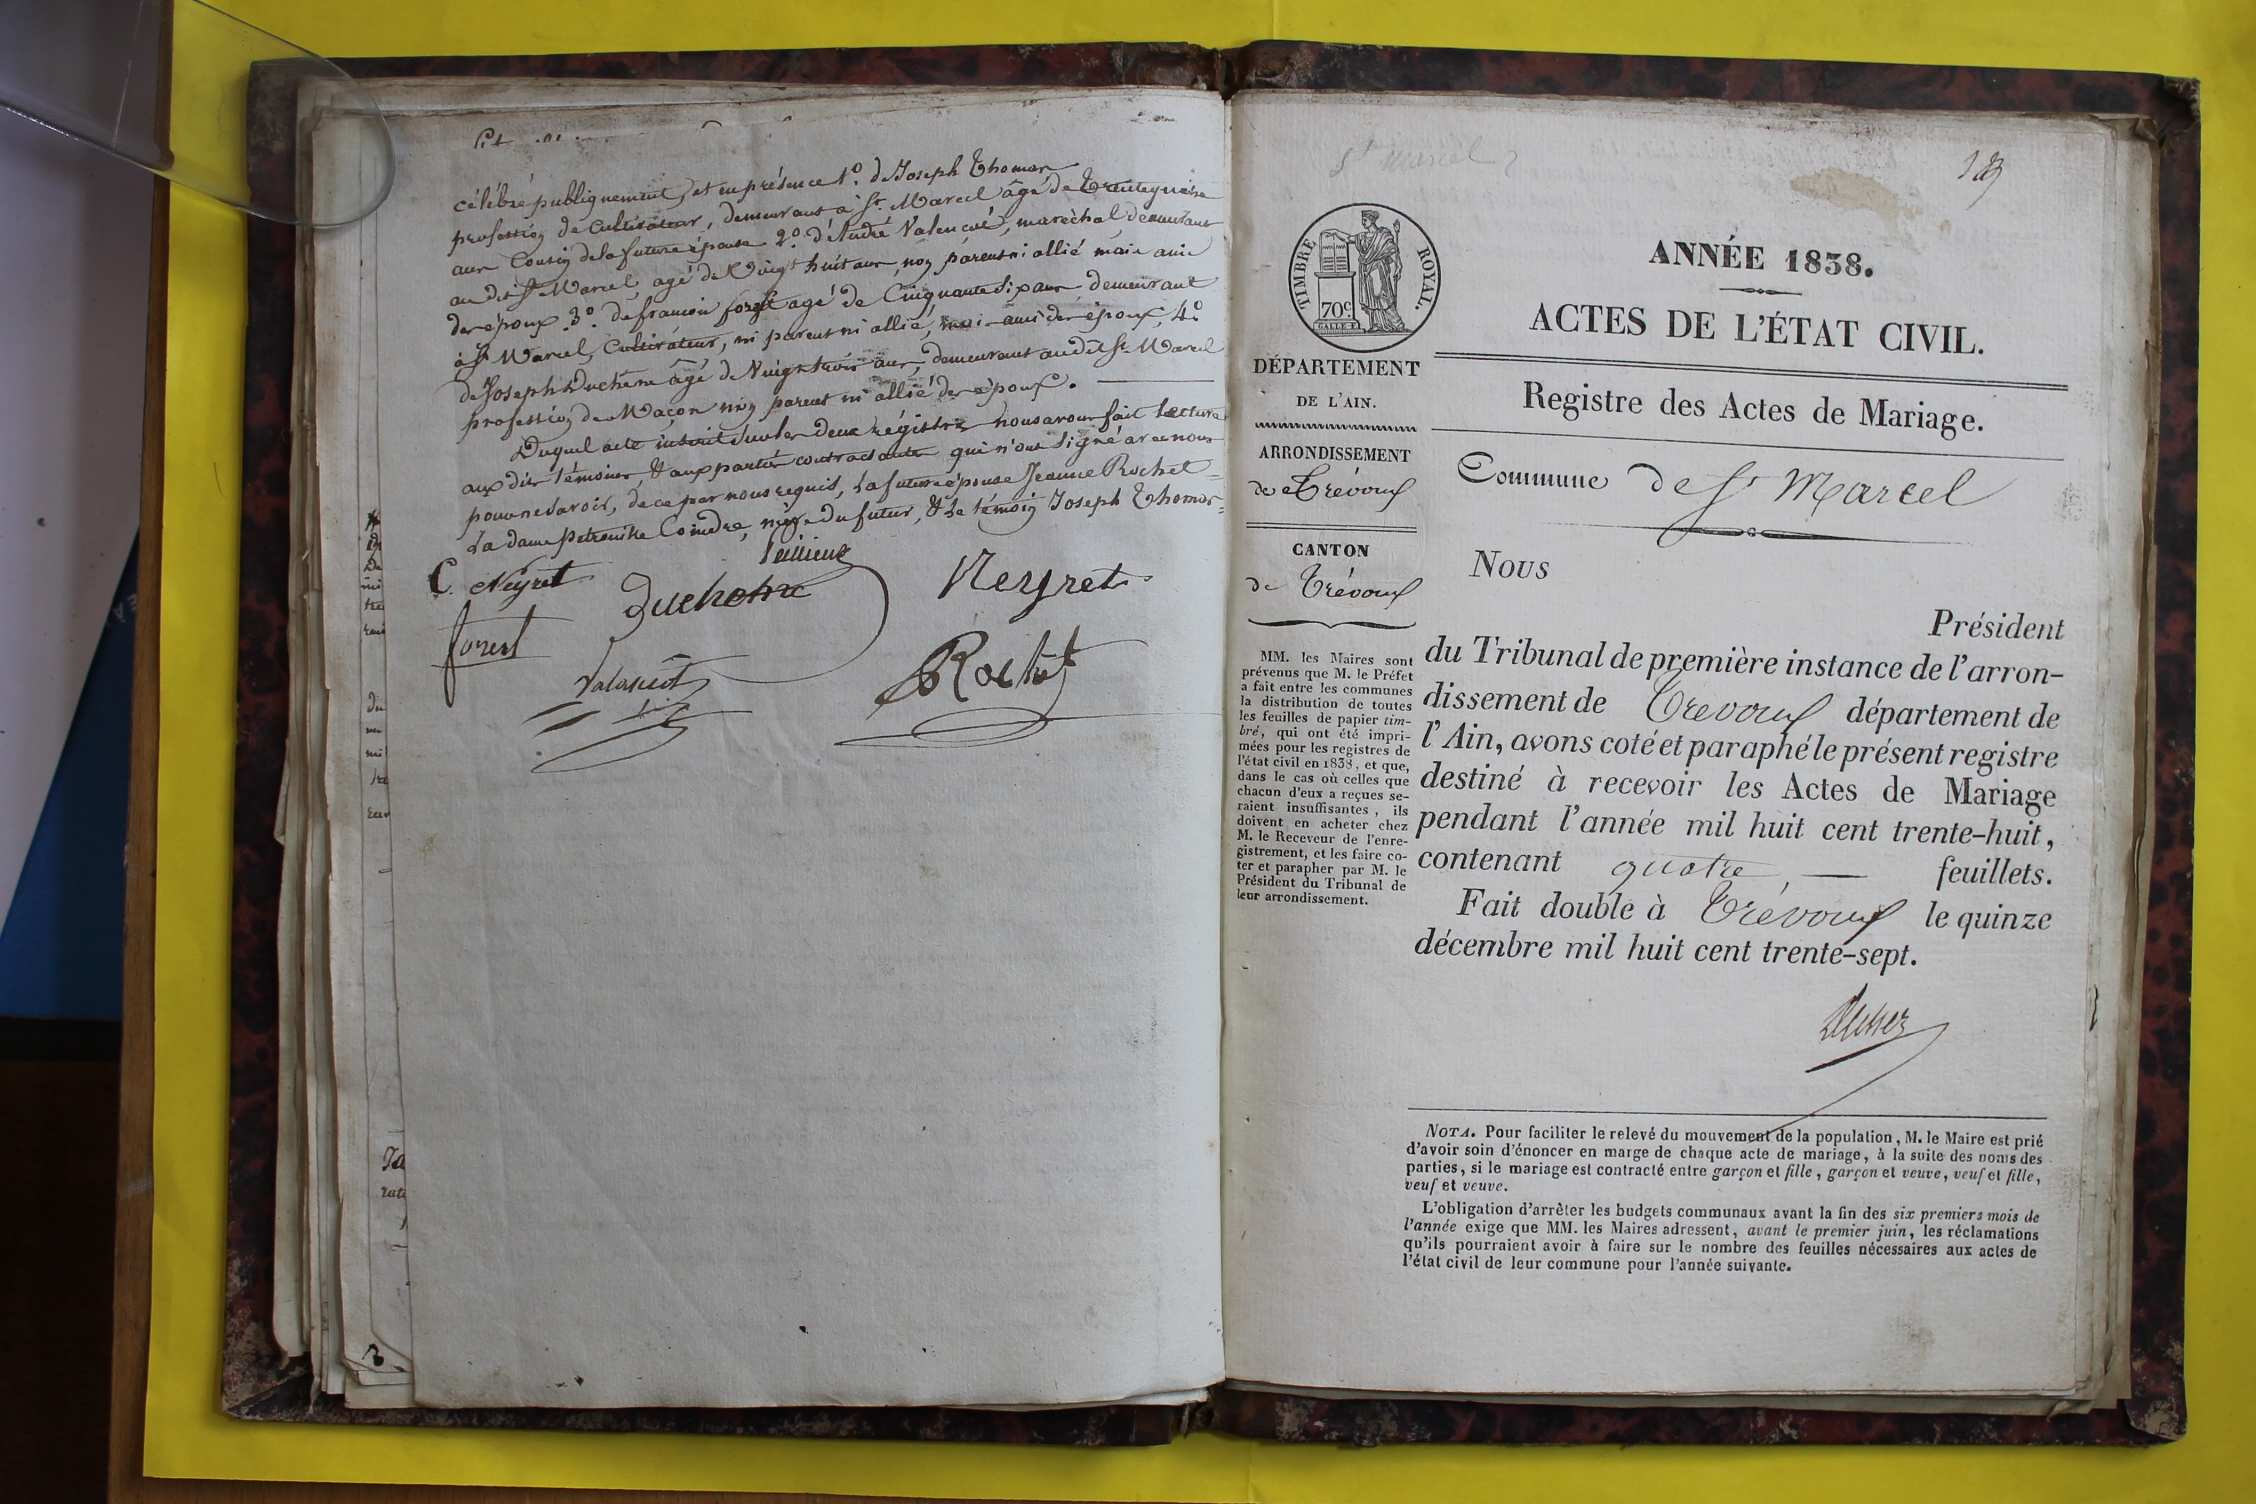 célébré publiquement, et en présence 1º. de Joseph Thomas
profession de Cultivateur, demeurant à St. Marcel âgé de trente quatre
ans Cousin de la future épouse 2º. d'André Valençot, maréchal demeurant
au dit St Marcel, agé de Vingt huit ans, non parent ni allié mais ami
des époux 3º. de françois forest agé de Cinquante Six ans demeurant
à St Marcel, Cultivateur, ni parent ni allié, mais ami des époux, 4º
de Joseph Duchêne âgé de Vingt trois ans, demeurant audit St Marcel
profession de Maçon non parent ni allié des époux.
Duquel acte inscrit sur les deux régistres nous avons fait lecture
aux dits témoins, & aux parties contractantes qui n'ont signé avec nous
pour ne savoir, de ce par nous requis, la future épouse Jeanne Rochet
La dame petronille Coindre, mère du futur, & Le témoin Joseph Thomas
C. Neyret
Duchene
Neyret
forest
Valançot
Rochet
St Marcel
TIMBRE ROYAL.
70c
ANNÉE 1838.
ACTES DE L'ÉTAT CIVIL.
DÉPARTEMENT
DE L'AIN.
ARRONDISSEMENT
de Trévoux
CANTON
de Trévoux
MM. les Maires sont
prévenus que M. le Préfet
a fait entre les communes
la distribution de toutes
les feuilles de papier tim-
bré, qui ont été impri-
mées pour les registres de
l'état civil en 1838, et que,
dans le cas où celles que
chacun d'eux a reçues se-
raient insuffisantes, ils
doivent en acheter chez
M. le Receveur de l'enre-
gistrement, et les faire co-
ter et parapher par M. le
Président du Tribunal de
leur arrondissement.
Registre des Actes de Mariage.
Commune de St Marcel
Nous
Président
du Tribunal de première instance de l'arron-
dissement de Trévoux département de
l'Ain, avons coté et paraphé le présent registre
destiné à recevoir les Actes de Mariage
pendant l'année mil huit cent trente-huit,
contenant quatre feuillets.
Fait double à Trévoux le quinze
décembre mil huit cent trente-sept.
NOTA. Pour faciliter le relevé du mouvement de la population, M. le Maire est prié
d'avoir soin d'énoncer en marge de chaque acte de mariage, à la suite des noms des
parties, si le mariage est contracté entre garçon et fille, garçon et veuve, veuf et fille,
veuf et veuve.
L'obligation d'arrêter les budgets communaux avant la fin des six premiers mois de
l'année exige que MM. les Maires adressent, avant le premier juin, les réclamations
qu'ils pourraient avoir à faire sur le nombre des feuilles nécessaires aux actes de
l'état civil de leur commune pour l'année suivante.